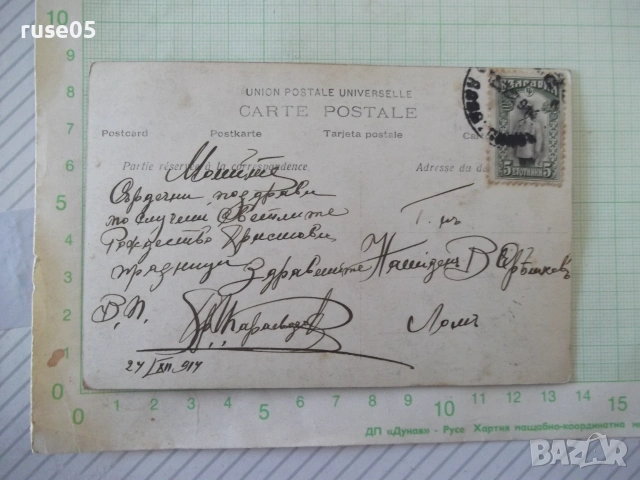 ruse05
UNION POSTALE UNIVERSELLE
CARTE POSTALE
Postcard Postkarte Tarjeta postale
Partie réservée à la correspondence
Adresse du
БЪЛГАРИЯ
5 СТОТИНКИ 5
Сърдечни поздрави
по случай Светлите
Рождество Христови
празници
Здравейте
Г-нъ
В.
Ломъ
В. П.
24/XII.914
10
9
8
7
6
5
4
3
2
1
0
0 1 2 3 4 5 6 7 8 9 10 11 12 13 14 15
ДП «Дунав» - Русе Хартия мащабно-координатна
BAZAR